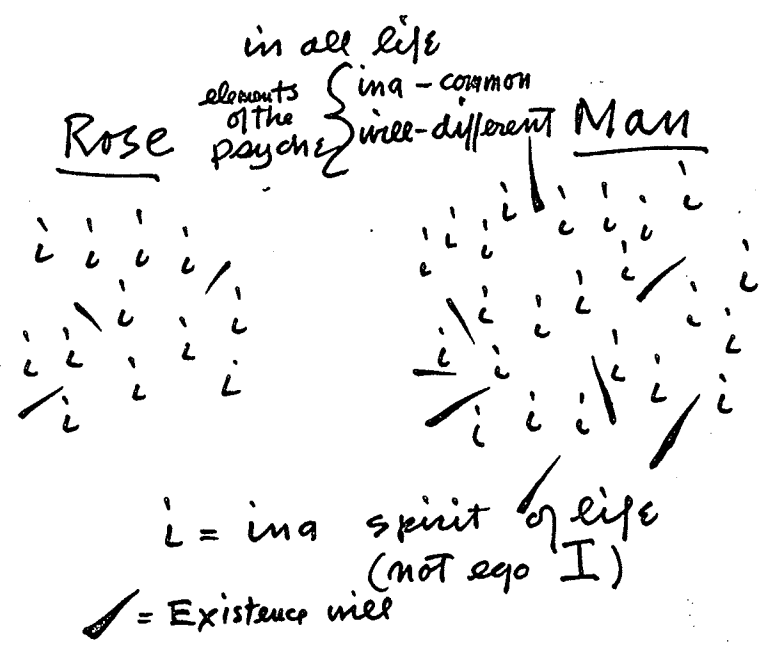 in all life
elements of the psyche { ina - common
will - different
Rose
Man
i = ina spirit of life
(not ego I)
= Existence will